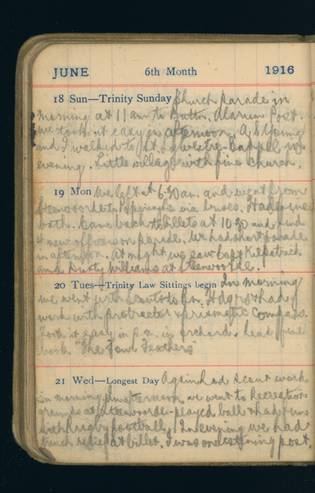 JUNE 6th Month 1916
18 Sun—Trinity Sunday Church parade in
morning at 11 am to Button, Alarum Post.
we took it easy in afternoon. A. L. Young
and I walked to St. Cappel in
evening. Little village with fine church.
19 Mon We left at 6:30 am and went from
to Poperinghe via buses. Had a fine
bath. Came back to billets at 10:30 and had
afternoon parade. We had short parade
in afternoon. At night we saw Capt Kilpatrick
and Dusty Williams at Steenvoorde.
20 Tues—Trinity Law Sittings begin In morning
we went with scouts to Bn. Hdqrs & had
work with protractor & prismatic compass.
Took it easy in P.M. in orchard. Read fine
book "The Four Feathers"
21 Wed—Longest Day Again had scout work
in morning. In afternoon we went to Recreation
grounds at Steenvoorde—played ball & had fun
with rugby football. In evening we had
at billet. I was on listening post.